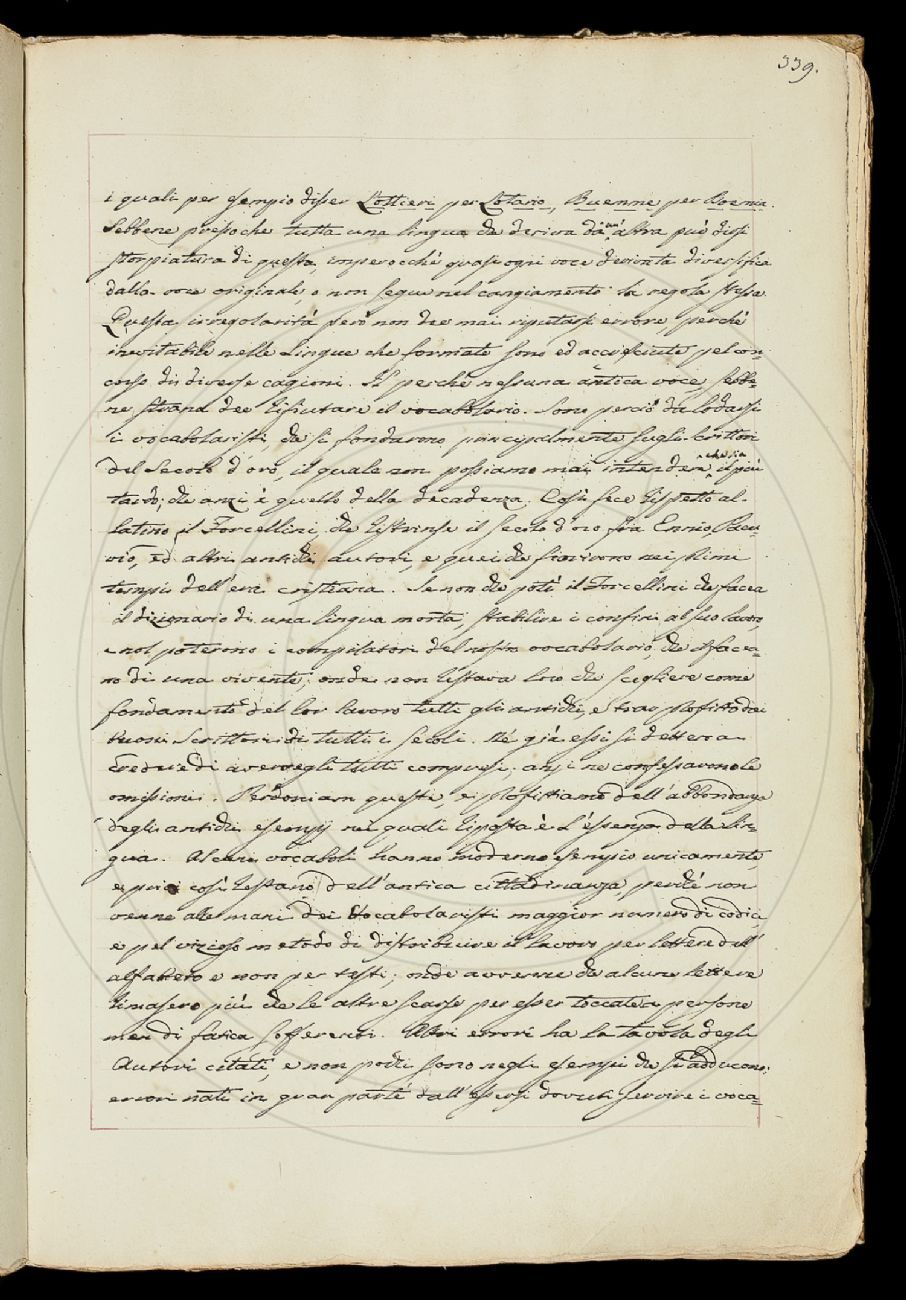 339.
i quali per esempio disser Lottieri per Lotario, Buemme per Boemia.
Sebbene pressoche tutta una lingua che deriva da un' altra può dirsi
storpiatura di questa, imperocchè quasi ogni voce diventa diversifica
dalla voce originale, o non segue nel cangiamento la regola stessa.
Questa irregolarità però non dee mai riputarsi errore, perchè
inevitabile nelle Lingue che formate sono ed accresciute pel con=
corso di diverse cagioni. Il perchè nessuna antica voce, sebbe=
ne strana dee rifiutare il vocabolario. Sono perciò da lodarsi
i vocabolaristi, che si fondarono principalmente sugli scrittori
del Secolo d'oro, il quale non possiamo mai intendere che sia il più
tardo; che anzi è quello della decadenza. Così fece rispetto al
latino il Forcellini, che ristrinse il secolo d'oro fra Ennio, Pacu=
vio, ed altri antichi autori, e quei che fiorirono nei primi
tempi dell'era cristiana. Se non che potè il Forcellini che facea
il dizionario di una lingua morta, stabilire i confini al suo lavoro,
e nol poterono i compilatori del nostro vocabolario, che il facea=
no di una vivente; onde non restava loro che scegliere come
fondamento del lor lavoro tutti gli antichi, e trar profitto dai
buoni Scrittori di tutti i secoli. Nè già essi si dettero a
credere di averegli tutti compresi; anzi ne confessarono le
omissioni. Perdoniam queste, e profittiamo dell'abbondanza
degli antichi esempj nei quali riposta è l'essenza della lin=
gua. Alcuni vocaboli hanno moderno esempio unicamente,
e privi così restano dell'antica cittadinanza, perchè non
venne alle mani dei Vocabolaristi maggior numero di codici,
e pel vizioso metodo di distribuire il lavoro per lettere dell'
alfabeto e non per testi; onde avvenne che alcune lettere
rimasero più che le altre scarse per esser toccate a persone
men di fatica sofferenti. Altri errori ha la tavola degli
Autori citati, e non pochi sono negli esempi che si adducono;
errori nati in gran parte dall'essersi dovuti servire i voca=